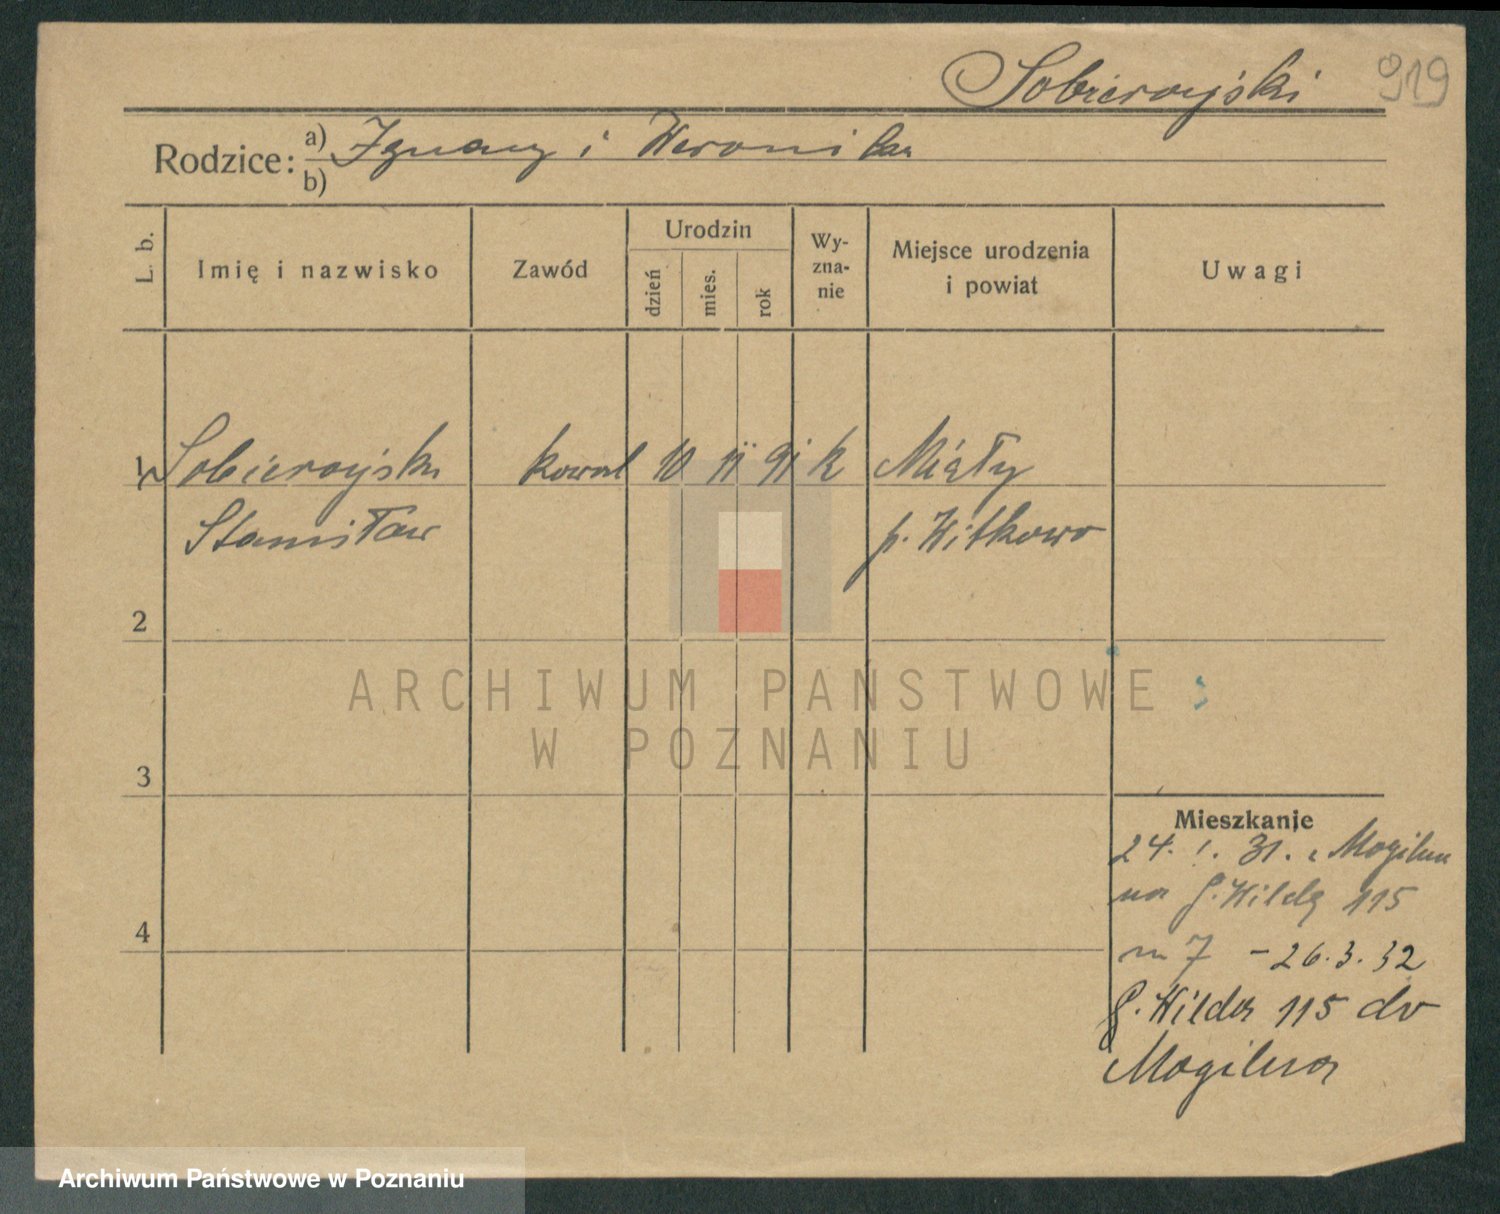 Sobierajski 919
Rodzice: a) Ignacy i Weronika
b)
L. b. Imię i nazwisko Zawód Urodzin dzień mies. rok Wy-zna-nie Miejsce urodzenia i powiat Uwagi
1 Sobierajski kowal 10 11 91 k Miąty
Stanisław p. Witkowo
2
ARCHIWUM PAŃSTWOWE
W POZNANIU
3
Mieszkanie
24. 1. 31. z Mogilna
na G. Wildę 115
m 7 – 26. 3. 32
4
G. Wilda 115 do
Mogilna
Archiwum Państwowe w Poznaniu